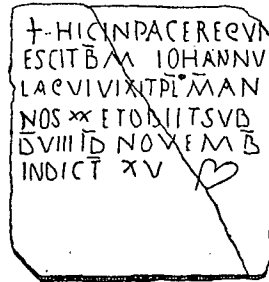 †-HICINPACEREQVN
ESCITB̅M IOHANNV
LAQVIVIXITPL̅•M̅AN
NOS XX ETOBIITSVB
D̅VIIII̅D̅ NOVEMB̅
INDICT̅ XV